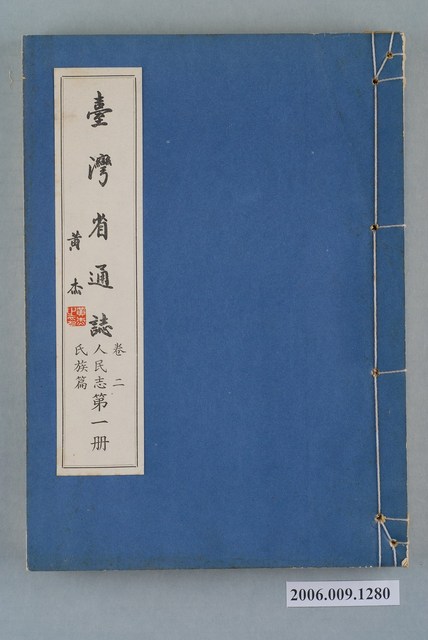 臺灣省通誌
黃杰
卷二
人民志第一册
氏族篇
2006.009.1280